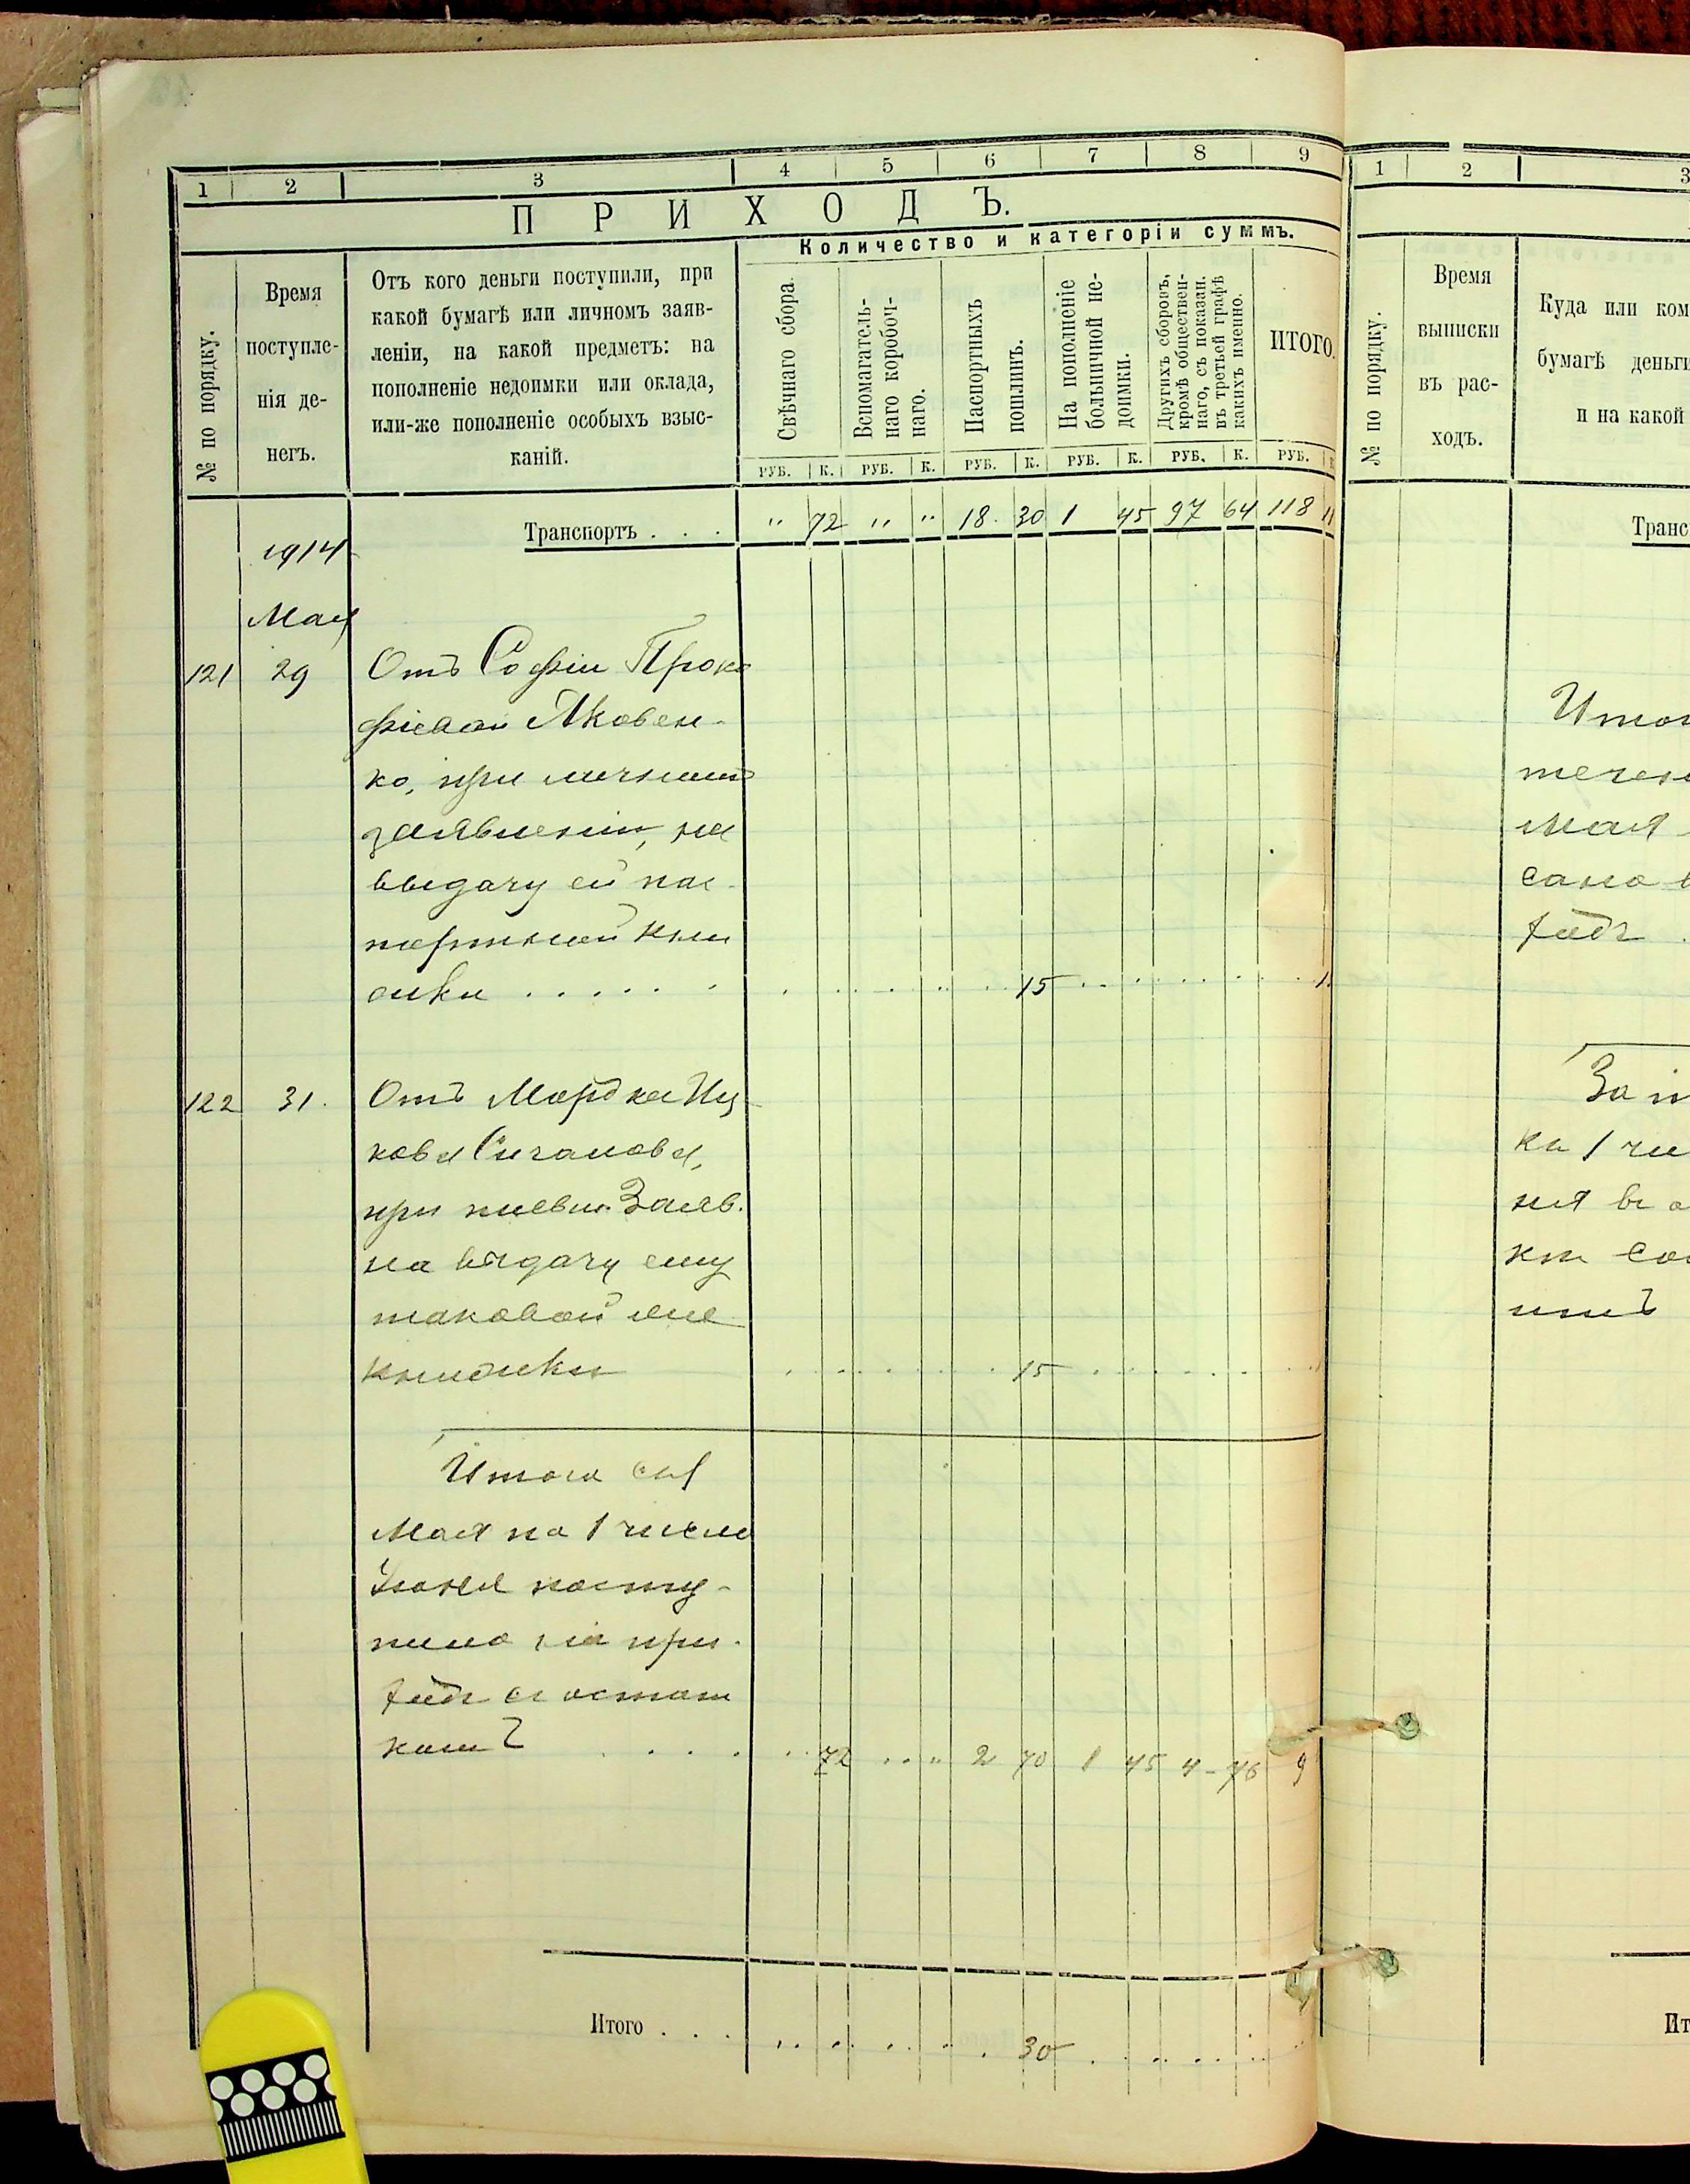 1 2 3 4 5 6 7 8 9
ПРИХОДЪ.
Количество и категоріи суммъ.
№ по порядку.
Время
поступле-
нія де-
негъ.
Отъ кого деньги поступили, при
какой бумагѣ или личномъ заяв-
леніи, на какой предметъ: на
пополненіе недоимки или оклада,
или-же пополненіе особыхъ взыс-
каній.
Свѣчнаго сбора.
Вспомагатель-
наго коробоч-
наго.
Паспортныхъ
пошлинъ.
На пополненіе
больничной не-
доимки.
Другихъ сборовъ,
кромѣ обществен-
наго, съ показан.
въ третьей графѣ
какихъ именно.
ИТОГО.
РУБ. К. РУБ. К. РУБ. К. РУБ. К. РУБ. К. РУБ.
Транспортъ . . . " 72 " " 18. 30 1 45 97 64 118 11
1914
Мая
121 29 Отъ Софіи Проко
фіевой Яковен-
ко, при личномъ
заявленіи, на
выдачу ей пас-
портной кни
жки . . . . . . 15
122 31. Отъ Мордка Иц
кова Сигалова,
при
заяв.
на выдачу ему
таковой же
книжки 15
Итого съ 1
Мая по 1 число
Іюня посту-
пило на при-
ходъ съ остат
комъ . . . . 72 " 2 70 1 45 4-76 9
Итого . . . 30
1 2 3
№ по порядку.
Время
выписки
въ рас-
ходъ.
Куда или ком
бумагѣ деньги
и на какой
Транс
Итог
течен
мая
сано в
ходъ
За
ки 1 чи
ня
Ит